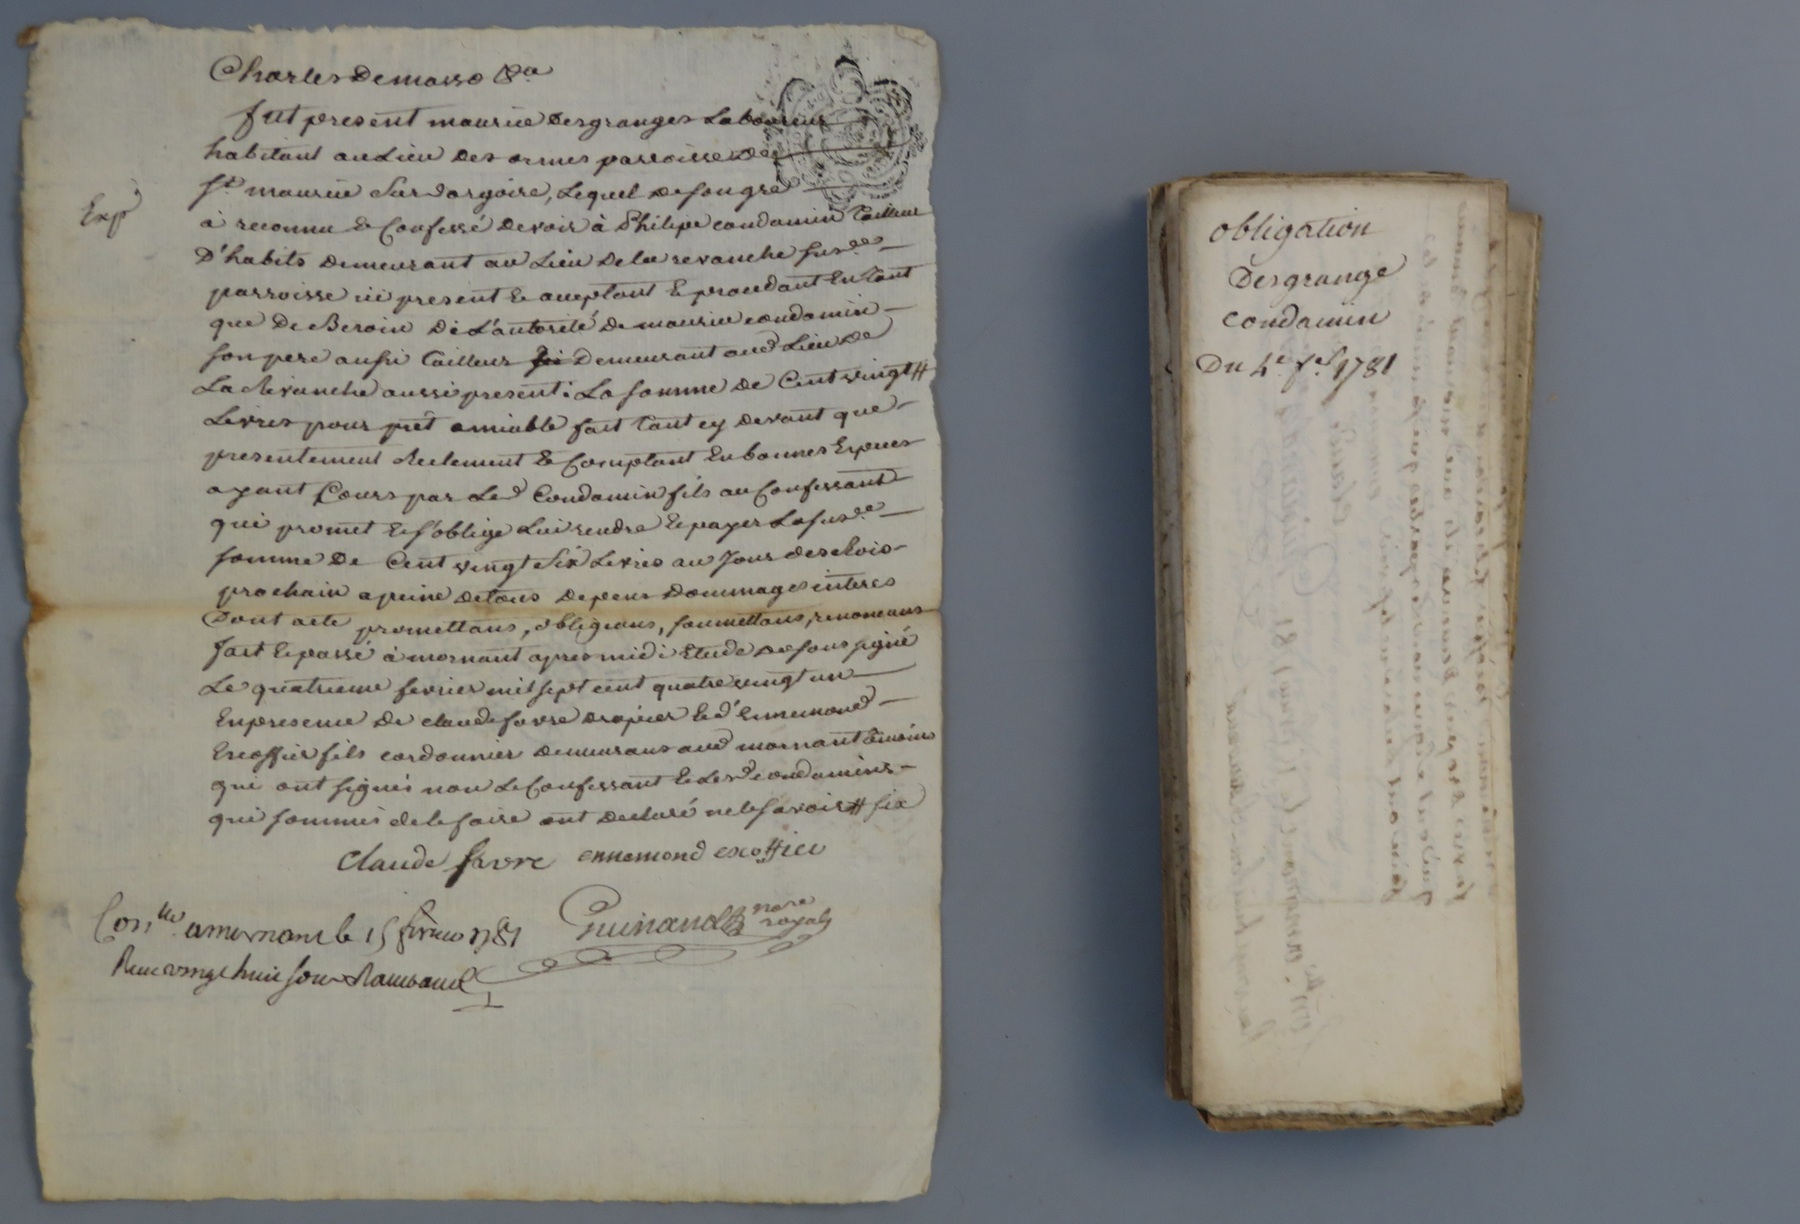 Charles Demasso &a
fut present maurice Desgranges Laboureur
habitant au Lieu des ormes parroisse de
St maurice Sur dargoire, Lequel de son gre
Exp
à reconnu & Confessé devoir à Philipe condamin Tailleur
D'habits demeurant au Lieu de la revanche sus.de
parroisse ici present & acceptant & procedant En tant
que De Besoin De L'autorité De maurice condamin
son pere aussi Tailleur Demeurant aud Lieu de
La Revanche aussi present: La somme de Cent vingt #
Livres pour prêt amiable fait tant cy devant que
presentement Reelement & Comptant En bonnes Especes
ayant Cours par Led Condamin fils au Confessant
qui promet & s'oblige Lui rendre & payer La sus.de
somme De Cent vingt Six Livres au Jour des Rois
prochain a peine de tous depens Dommages interes
Dont acte promettans, obligeans, soumettans, renonceans
fait & passé à mornant apres midi Etude du sousigné
Le quatrieme fevrier mil sept cent quatre vingt un
En presence De claude favre drapier & d'Ennemond
Excoffier fils cordonnier demeurans aud mornant témoins
qui ont signés non Le Confessant & Lesd condamins
qui sommés de le faire ont Declaré ne le savoir # six
Claude favre ennemond excoffier
Guinand nore royal
Con.lle a mornant le 15 fevrier 1781
Recu vingt huit sous Rambaud
obligation
Desgrange
Condamin
Du 4e fer 1781